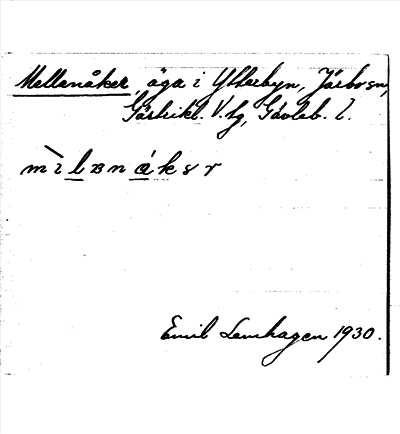 Mellanåker, äga i Ytterbyn, Järbo sn,
Gästrikl. V. tg, Gävleb. l.
mìlɐnákər
Emil Lenhagen 1930.